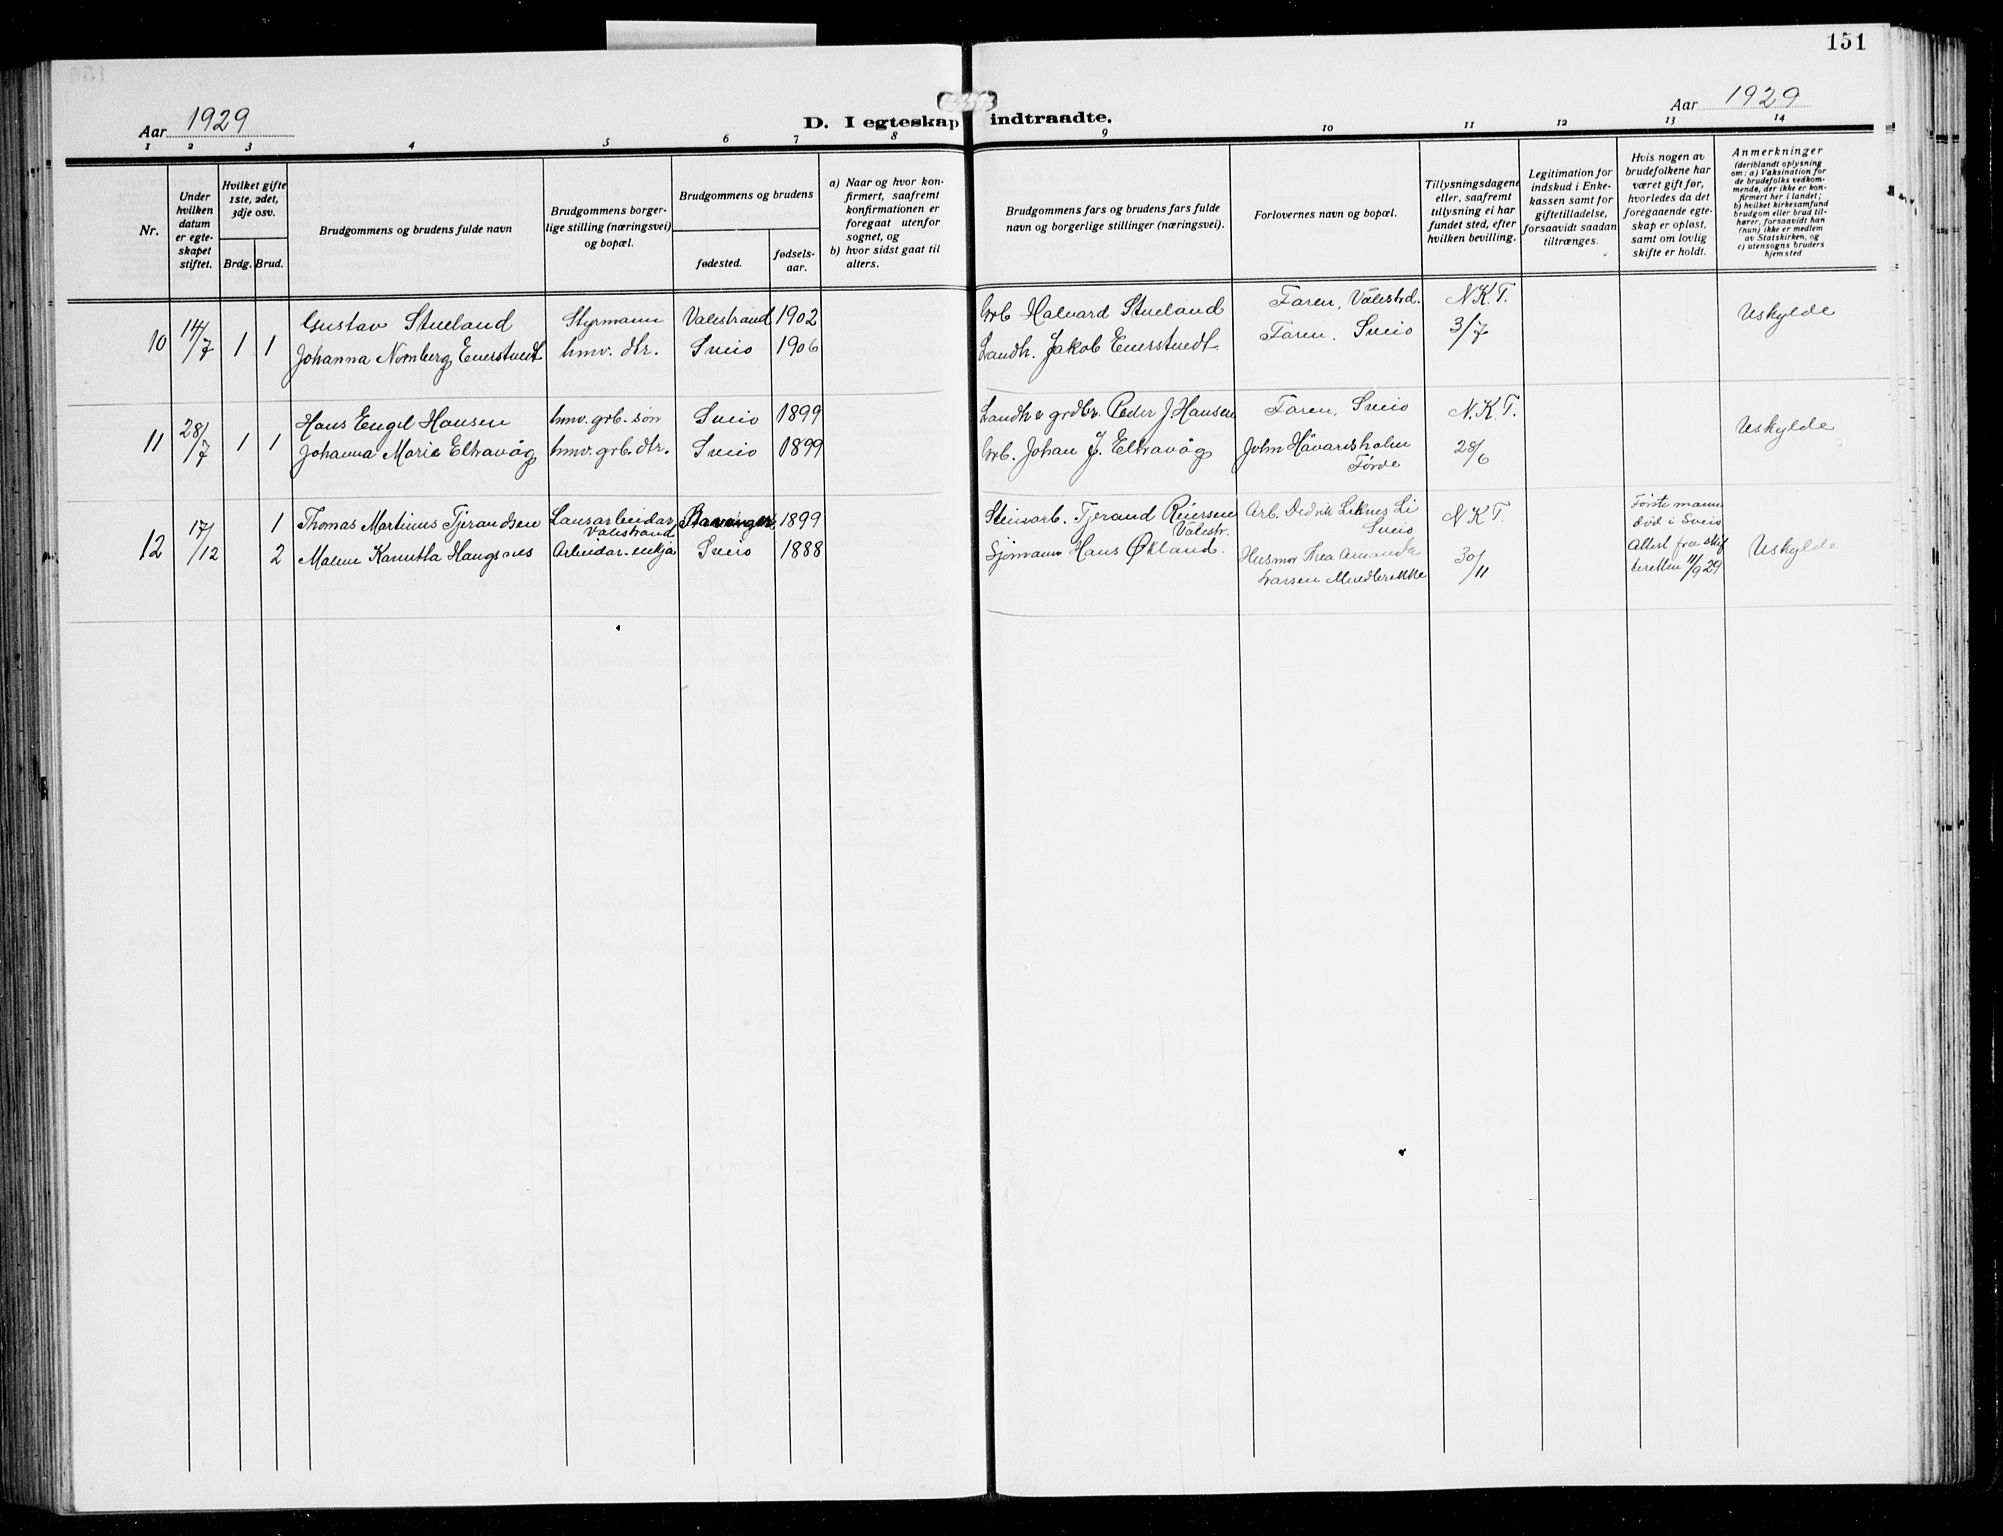 151
Aar 1929
D. I egteskap indtraadte.
Aar 1929
1 2 3 4 5 6 7 8 9 10 11 12 13 14
Nr.
Under
hvilken
datum
er egte-
skapet
stiftet.
Hvilket gifte
1ste, 2det,
3dje osv.
Brdg. Brud.
Brudgommens og brudens fulde navn
Brudgommens borger-
lige stilling (næringsvei)
og bopæl.
Brudgommens og brudens
fødested.
fødsels-
aar.
a) Naar og hvor kon-
firmert, saafremt
konfirmationen er
foregaat utenfor
sognet, og
b) hvor sidst gaat til
alters.
Brudgommens fars og brudens fars fulde
navn og borgerlige stillinger (næringsvei).
Forlovernes navn og bopæl.
Tillysningsdagene
eller, saafremt
tillysning ei har
fundet sted, efter
hvilken bevilling.
Legitimation for
indskud i Enke-
kassen samt for
giftetilladelse,
forsaavidt saadan
tiltrænges.
Hvis nogen av
brudefolkene har
været gift før,
hvorledes da det
foregaaende egte-
skap er opløst,
samt om lovlig
skifte er holdt.
Anmerkninger
(deriblandt oplysning
om: a) Vaksination for
de brudefolks vedkom-
mende, der ikke er kon-
firmert her i landet;
b) hvilket kirkesamfund
brudgom eller brud til-
hører, forsaavidt han
(hun) ikke er medlem
av Statskirken, og
c) utensogns bruders
hjemsted
10 14/7 1 1
Gustav Stueland Styrmann Valestrand 1902 Grb Halvard Stueland Faren, Valestrd. N.K.T.
Johanna Nornberg Emerstvedt hmv. dtr. Sveio 1906 Landh. Jakob Emerstvedt Faren, Sveio 3/7
Uskylde
11 28/7 1 1
Hans Engel Hansen hmv. grb. søn Sveio 1899 Landh & grdbr. Peder J. Hansen Faren, Sveio N.K.T.
Johanna Marie Eltravåg hmv. grb. dtr. Sveio 1899 Grb. Johan J. Eltravåg John Håvardsholm
Førde
28/6
Uskylde
12 17/12
1 Thomas Martinus Tjerandsen Lausarbeidar Stavanger 1899 Steinarb. Tjerand Reiersen
Valestrand
Valestr.
Arb. Dedrik Liknes Li
Sveio
N.K.T.
2 Malene Kanutta Haugsnes Arbeidar-enkja Sveio 1888 Sjømann Hans Økland.
Husmor Thea Amanda
Larsen
30/11
Første mann
død i Sveio
Attest fra skif
teretten 11/9 29
Uskylde